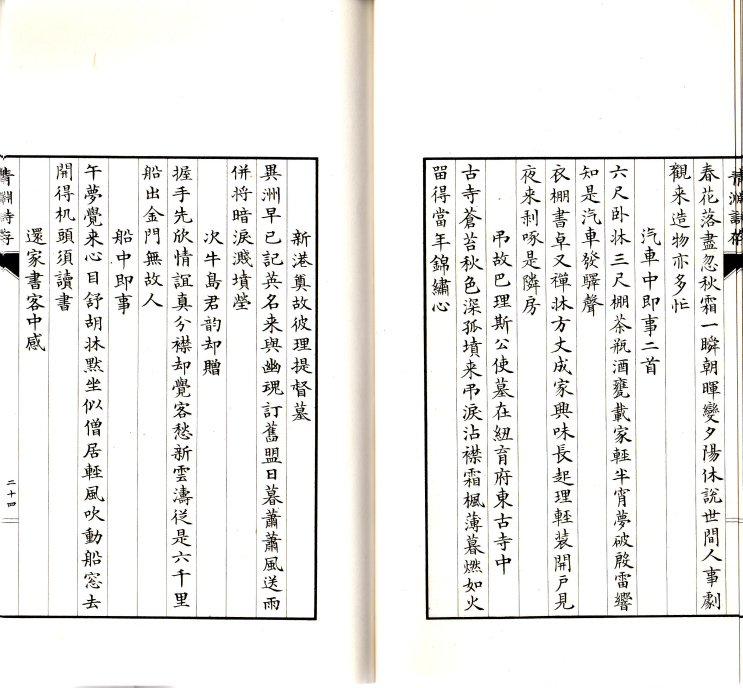 春花落盡忽秋霜一瞬朝暉變夕陽休說世間人事劇
觀来造物亦多忙
汽車中即事二首
六尺卧牀三尺棚茶瓶酒甕載家輕半宵夢破殷雷響
知是汽車發驛聲
衣棚書卓又禪牀方丈成家興味長起理輕裝開戶見
夜来剥啄是隣房
弔故巴理斯公使墓在紐育府東古寺中
古寺蒼苔秋色深孤墳来弔淚沾襟霜楓薄暮燃如火
留得當年錦繡心
新港奠故彼理提督墓
異洲早已記英名来與幽魂訂舊盟日暮蕭蕭風送雨
併将暗淚濺墳塋
次牛島君韵却贈
握手先欣情誼真分襟却覺客愁新雲濤従是六千里
船出金門無故人
船中即事
午夢覺来心目舒胡牀默坐似僧居輕風吹動船窓去
開得机頭須讀書
還家書客中感
青淵詩存
二十四